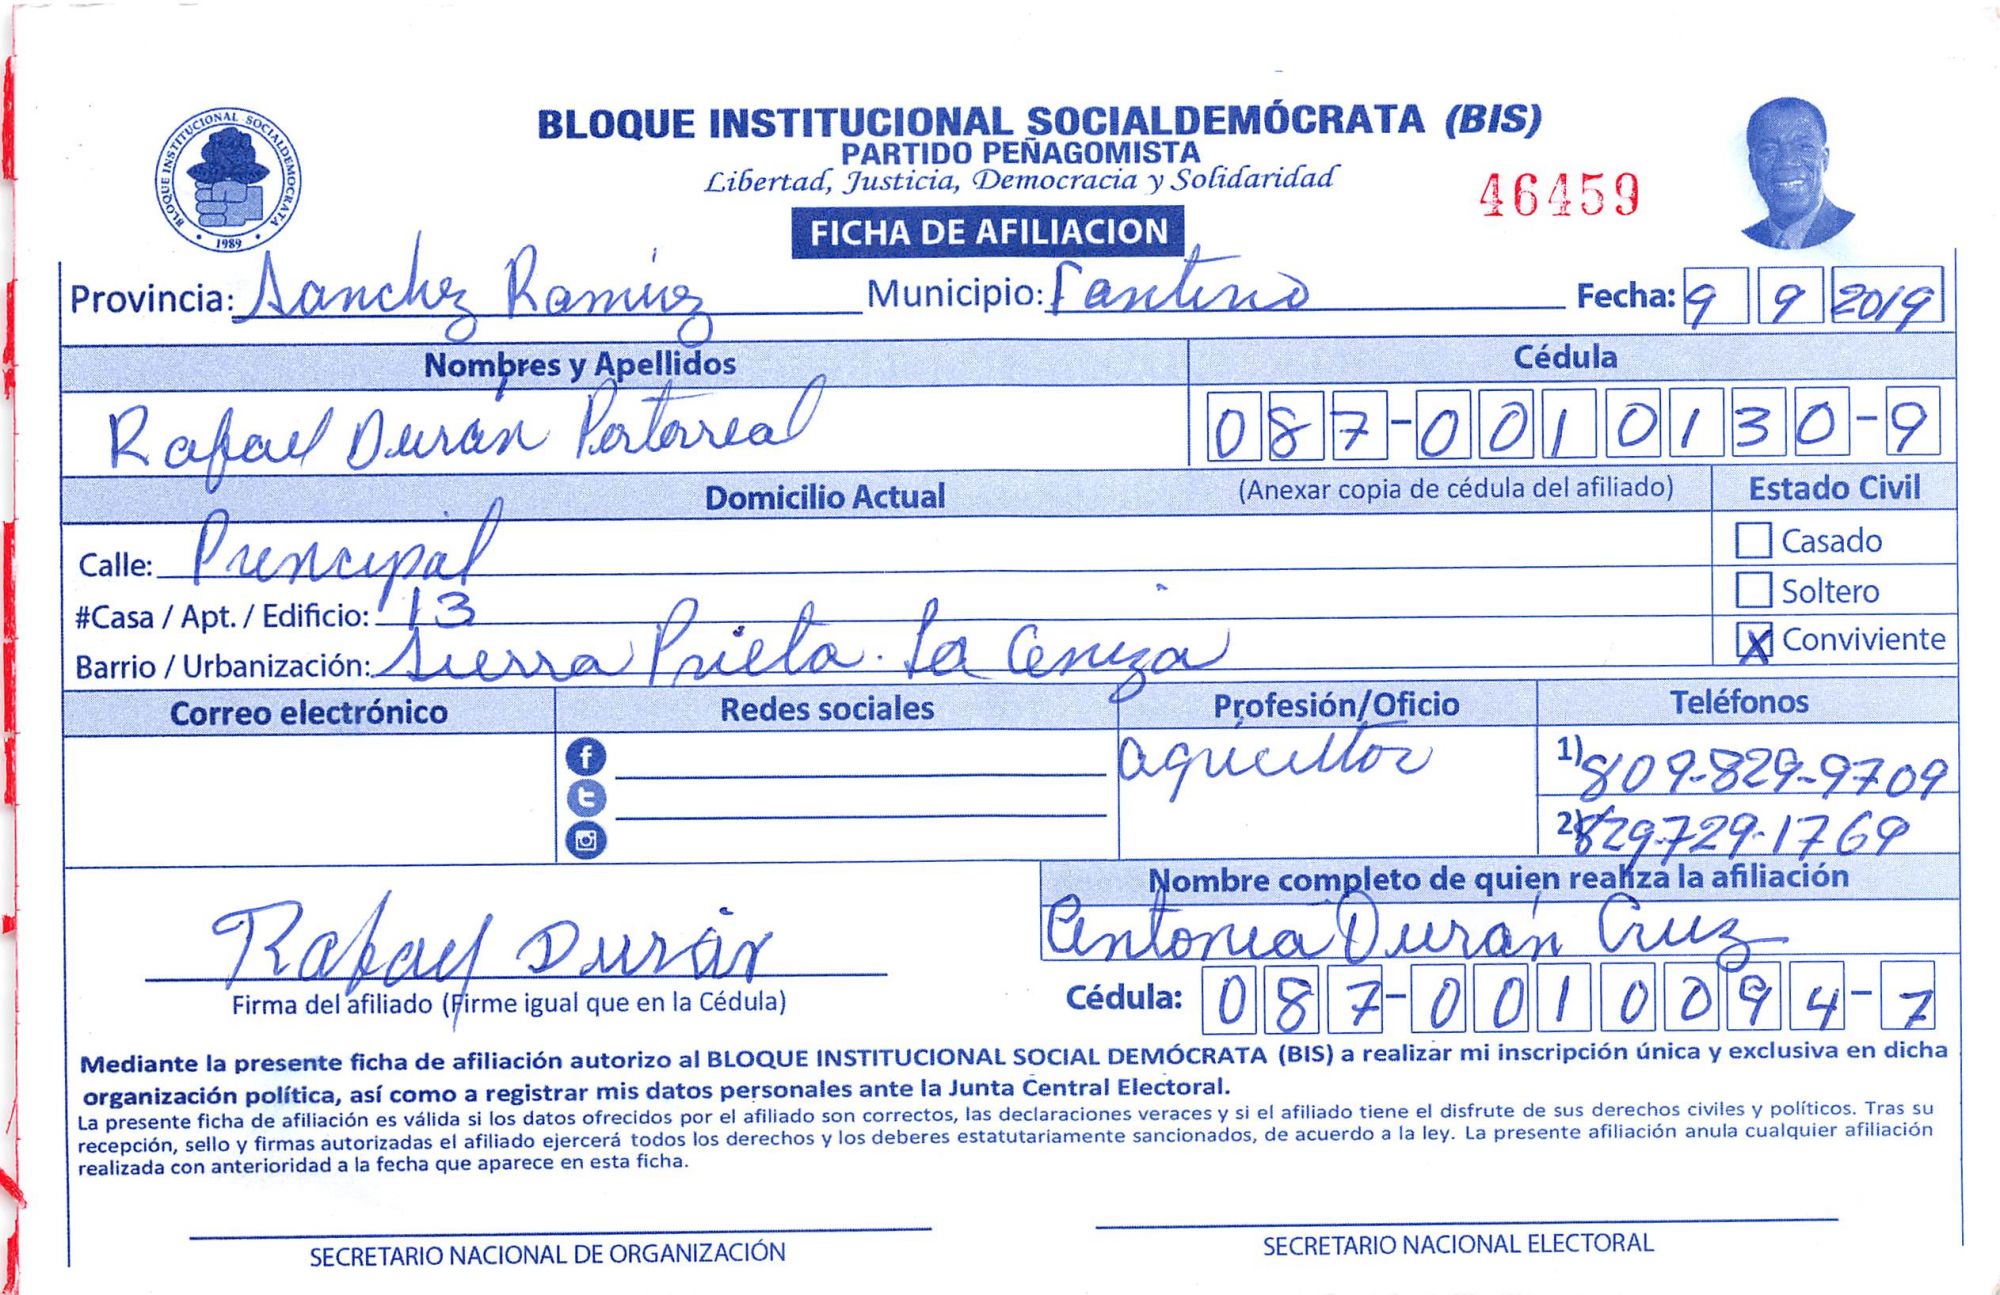 BLOQUE INSTITUCIONAL SOCIALDEMOCRATA
1989
BLOQUE INSTITUCIONAL SOCIALDEMÓCRATA (BIS)
PARTIDO PEÑAGOMISTA
Libertad, Justicia, Democracia y Solidaridad
46459
FICHA DE AFILIACION
Provincia: Sanchez Ramirez Municipio: Fantino Fecha: 9 9 2019
Nombres y Apellidos Cédula
Rafael Durán Portorreal 087-0010130-9
Domicilio Actual (Anexar copia de cédula del afiliado) Estado Civil
Calle: Prencipal
Casado
#Casa / Apt. / Edificio: 13
Soltero
Barrio / Urbanización: Sierra Prieta. La Ceniza
X Conviviente
Correo electrónico Redes sociales Profesión/Oficio Teléfonos
agricultor 1) 809-829-9709
2) 829-729-1769
Nombre completo de quien realiza la afiliación
Antonia Durán Cruz
Rafael Durán
Firma del afiliado (Firme igual que en la Cédula)
Cédula: 087-0010094-7
Mediante la presente ficha de afiliación autorizo al BLOQUE INSTITUCIONAL SOCIAL DEMÓCRATA (BIS) a realizar mi inscripción única y exclusiva en dicha
organización política, así como a registrar mis datos personales ante la Junta Central Electoral.
La presente ficha de afiliación es válida si los datos ofrecidos por el afiliado son correctos, las declaraciones veraces y si el afiliado tiene el disfrute de sus derechos civiles y políticos. Tras su
recepción, sello y firmas autorizadas el afiliado ejercerá todos los derechos y los deberes estatutariamente sancionados, de acuerdo a la ley. La presente afiliación anula cualquier afiliación
realizada con anterioridad a la fecha que aparece en esta ficha.
SECRETARIO NACIONAL DE ORGANIZACIÓN
SECRETARIO NACIONAL ELECTORAL